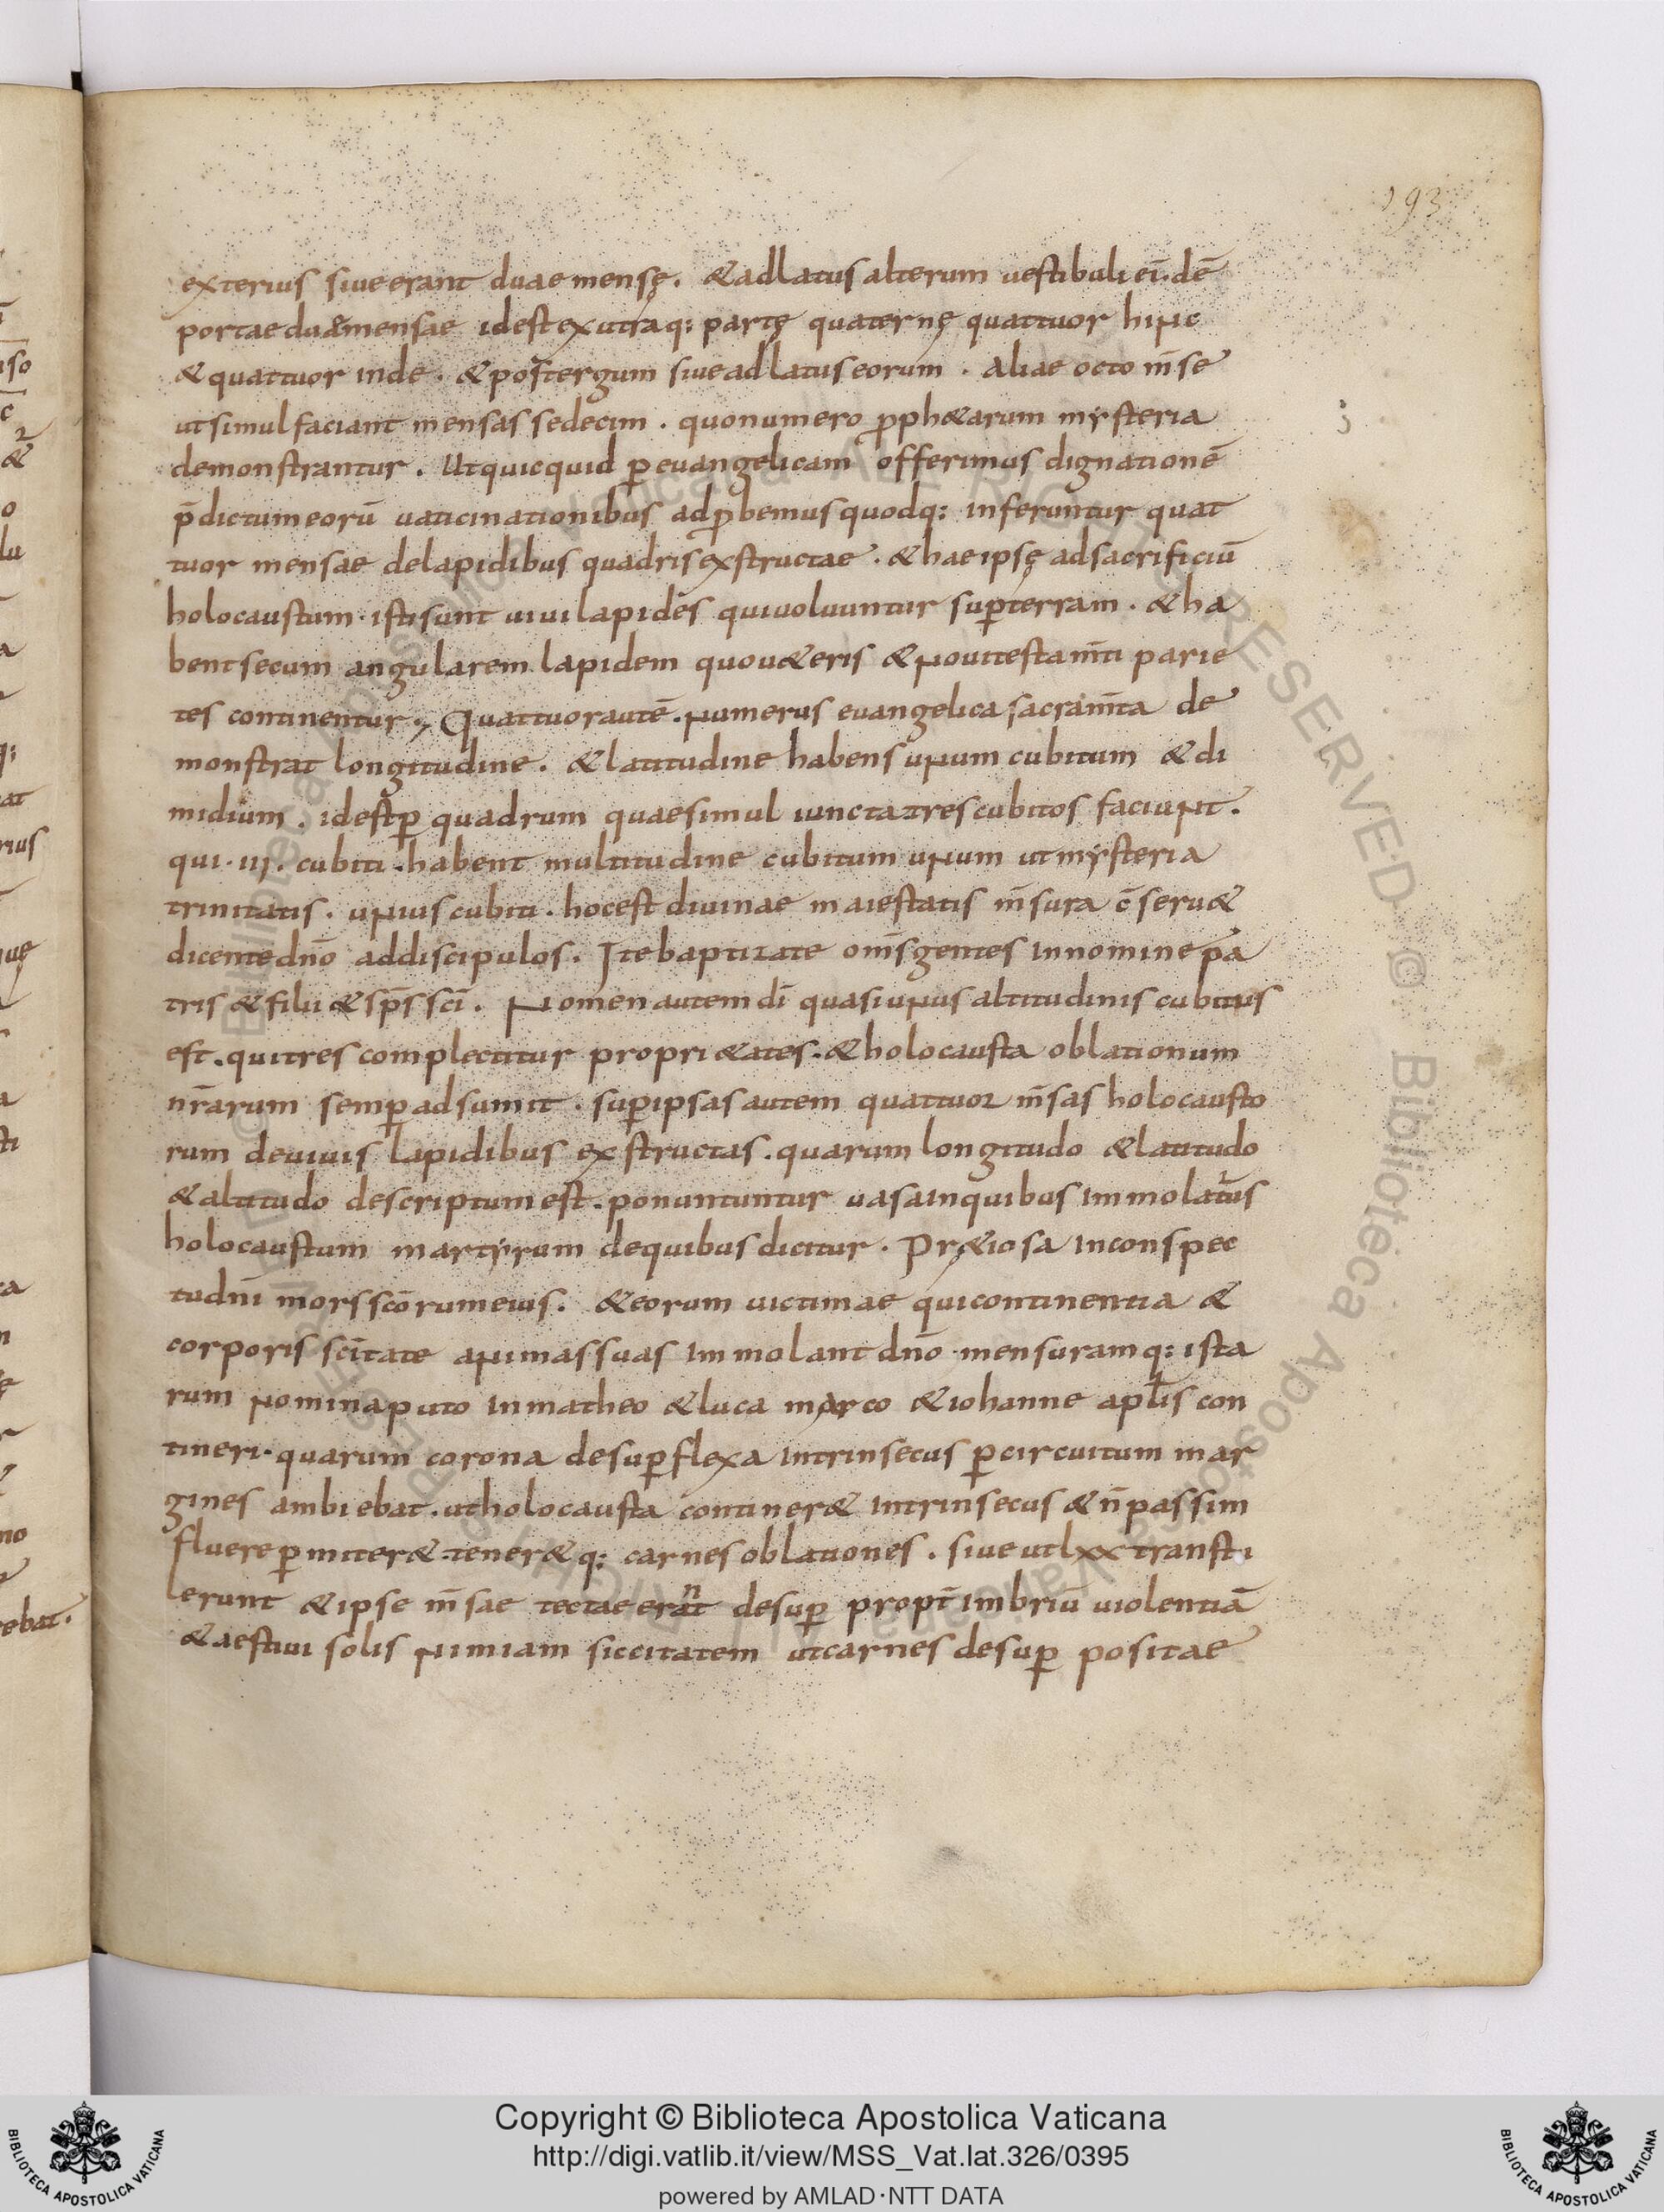 193
exterius siue erant duae mensę. & ad latus alterum uestibuli ei·dē
portae duae mensae id est ex utraq: partę quaternę quattuor hinc
& quattuor inde. & post ergum siue ad latus eorum. Aliae octo m̄se
ut simul faciant mensas sedecim. quo numero ꝓph&arum mysteria
demonstrantur. Ut quicquid ꝑ euangelicam offerimus dignationē
p̄dictum eorū uaticinationibus adꝓbemus quodq: inferuntur quat
tuor mensae de lapidibus quadris exstructae. & hae ipsę ad sacrificiū
holocaustum· isti sunt uiui lapides qui uoluuntur suꝑ terram. & ha
bent secum angularem lapidem quo u&eris & noui testam̄ti parie
tes continentur., Quattuor autē. numerus euangelica sacram̄ta de
monstrat longitudine. & latitudine habens unum cubitum & di
midium. id est ꝑ quadrum quae simul iuncta tres cubitos faciunt.
qui· iii. cubiti. habent multitudine cubitum unum ut mysteria
trinitatis. unius cubiti. hoc est diuinae maiestatis m̄sura c̄seru&
dicente dn̄o ad discipulos. Ite baptizate om̄s gentes in nomine pa
tris & filii & sp̄s sc̄i. Nomen autem dī quasi unus altitudinis cubitus
est. qui tres complectitur propri&ates. & holocausta oblationum
nr̄arum semꝑ adsumit. suꝑ ipsas autem quattuor m̄sas holocausto
rum de uiuis lapidibus exstructas. quarum longitudo & latitudo
& altitudo descriptum est. ponuntuntur uasa in quibus immolatus
holocaustum martyrum de quibus dicitur. Pr&iosa in conspec
tu dn̄i mors sc̄orum eius. & eorum uictimae qui continentia &
corporis sc̄itate animas suas immolant dn̄o mensuramq: ista
rum nomina puto in matheo & luca marco & iohanne apl̄is con
tineri. quarum corona desuꝑ flexa intrinsecus ꝑ circuitum mar
gines ambiebat. ut holocausta continer& intrinsecus & n̄ passim
fluere ꝑmitter& tener&q: carnes oblationes. siue ut lxx transtu
lerunt & ipse m̄sae tectae erant desuꝑ propt̄ imbriū uiolentiā
& aestiui solis nimiam siccitatem ut carnes desuꝑ positae
Copyright © Biblioteca Apostolica Vaticana
http://digi.vatlib.it/view/MSS_Vat.lat.326/0395
powered by AMLAD·NTT DATA